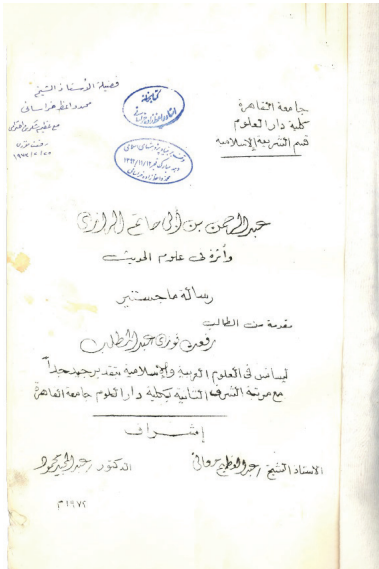 جامعة القاهرة
كلية دار العلوم
قسم الشريعة الإسلامية
فضيلة الأستاذ الشيخ
محمد واعظ خراسانى
مع
كتابخانه
عبد الرحمن بن أبى حاتم الرازى
وأثره فى علوم الحديث
رسالة ماجستير
مقدمة من الطالب
رفعت فوزى عبد المطلب
ليسانس فى العلوم العربية والإسلامية بتقدير جيد جداً
مع مرتبة الشرف الثانية بكلية دار العلوم جامعة القاهرة
إشراف
الأستاذ الشيخ / عبد العظيم معانى
الدكتور / عبد المجيد محمود
١٩٧٢م